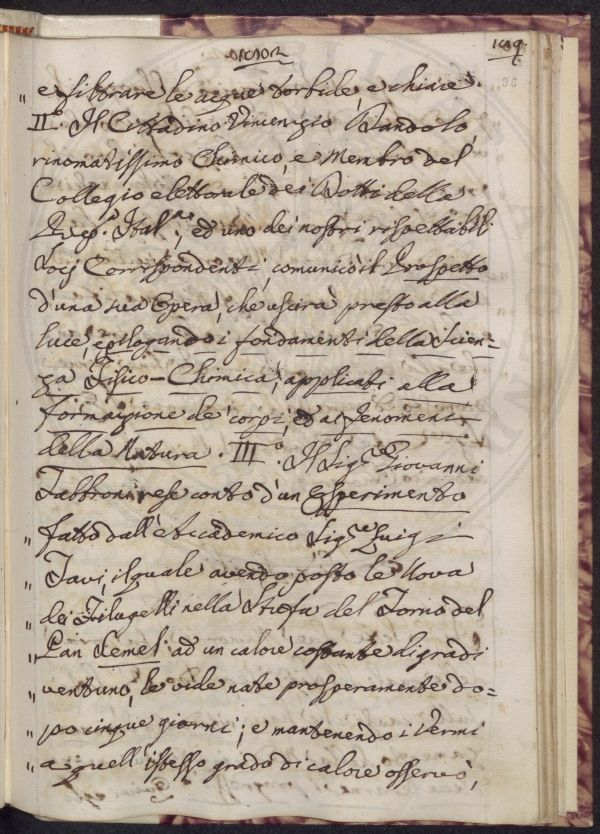 109.
96
" e filtrare le acque torbide, e chiare.
II.° Il Cittadino Vincenzio Dandolo,
rinomatissimo Chimico, e Membro del
Collegio elettorale dei Dotti della
Rep.ª Ital.ª, ed uno dei nostri rispettabili
Socj Corrispondenti, comunicò il Prospetto
d'una sua Opera, che uscirà presto alla
luce, epilogando i fondamenti della Scien-
za Fisico-Chimica, applicati alla
formazione de' corpi, ed ai Fenomeni
della Natura. III.° Il Sig.re Giovanni
Fabbroni rese conto d'un Esperimento
" fatto dall'Accademico Sig.re Luigi
" Tavi, il quale avendo posto le Uova
" dei Filugelli nella Stufa del Forno del
" Pan Semel ad un calore costante di gradi
" ventuno, le vide nate prosperamente do=
" po cinque giorni; e mantenendo i Vermi
" a quell'istesso grado di calore osservò,